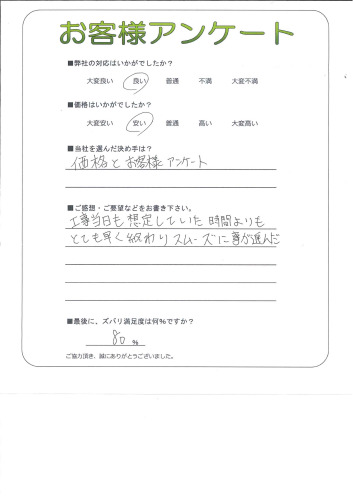 お客様アンケート
■弊社の対応はいかがでしたか?
大変良い 良い 普通 不満 大変不満
■価格はいかがでしたか?
大変安い 安い 普通 高い 大変高い
■当社を選んだ決め手は?
価格とお客様アンケート
■ご感想・ご要望などをお書き下さい。
工事当日も想定していた時間よりも
とても早く終わりスムーズに事が進んだ
■最後に、ズバリ満足度は何%ですか?
80 %
ご協力頂き、誠にありがとうございました。